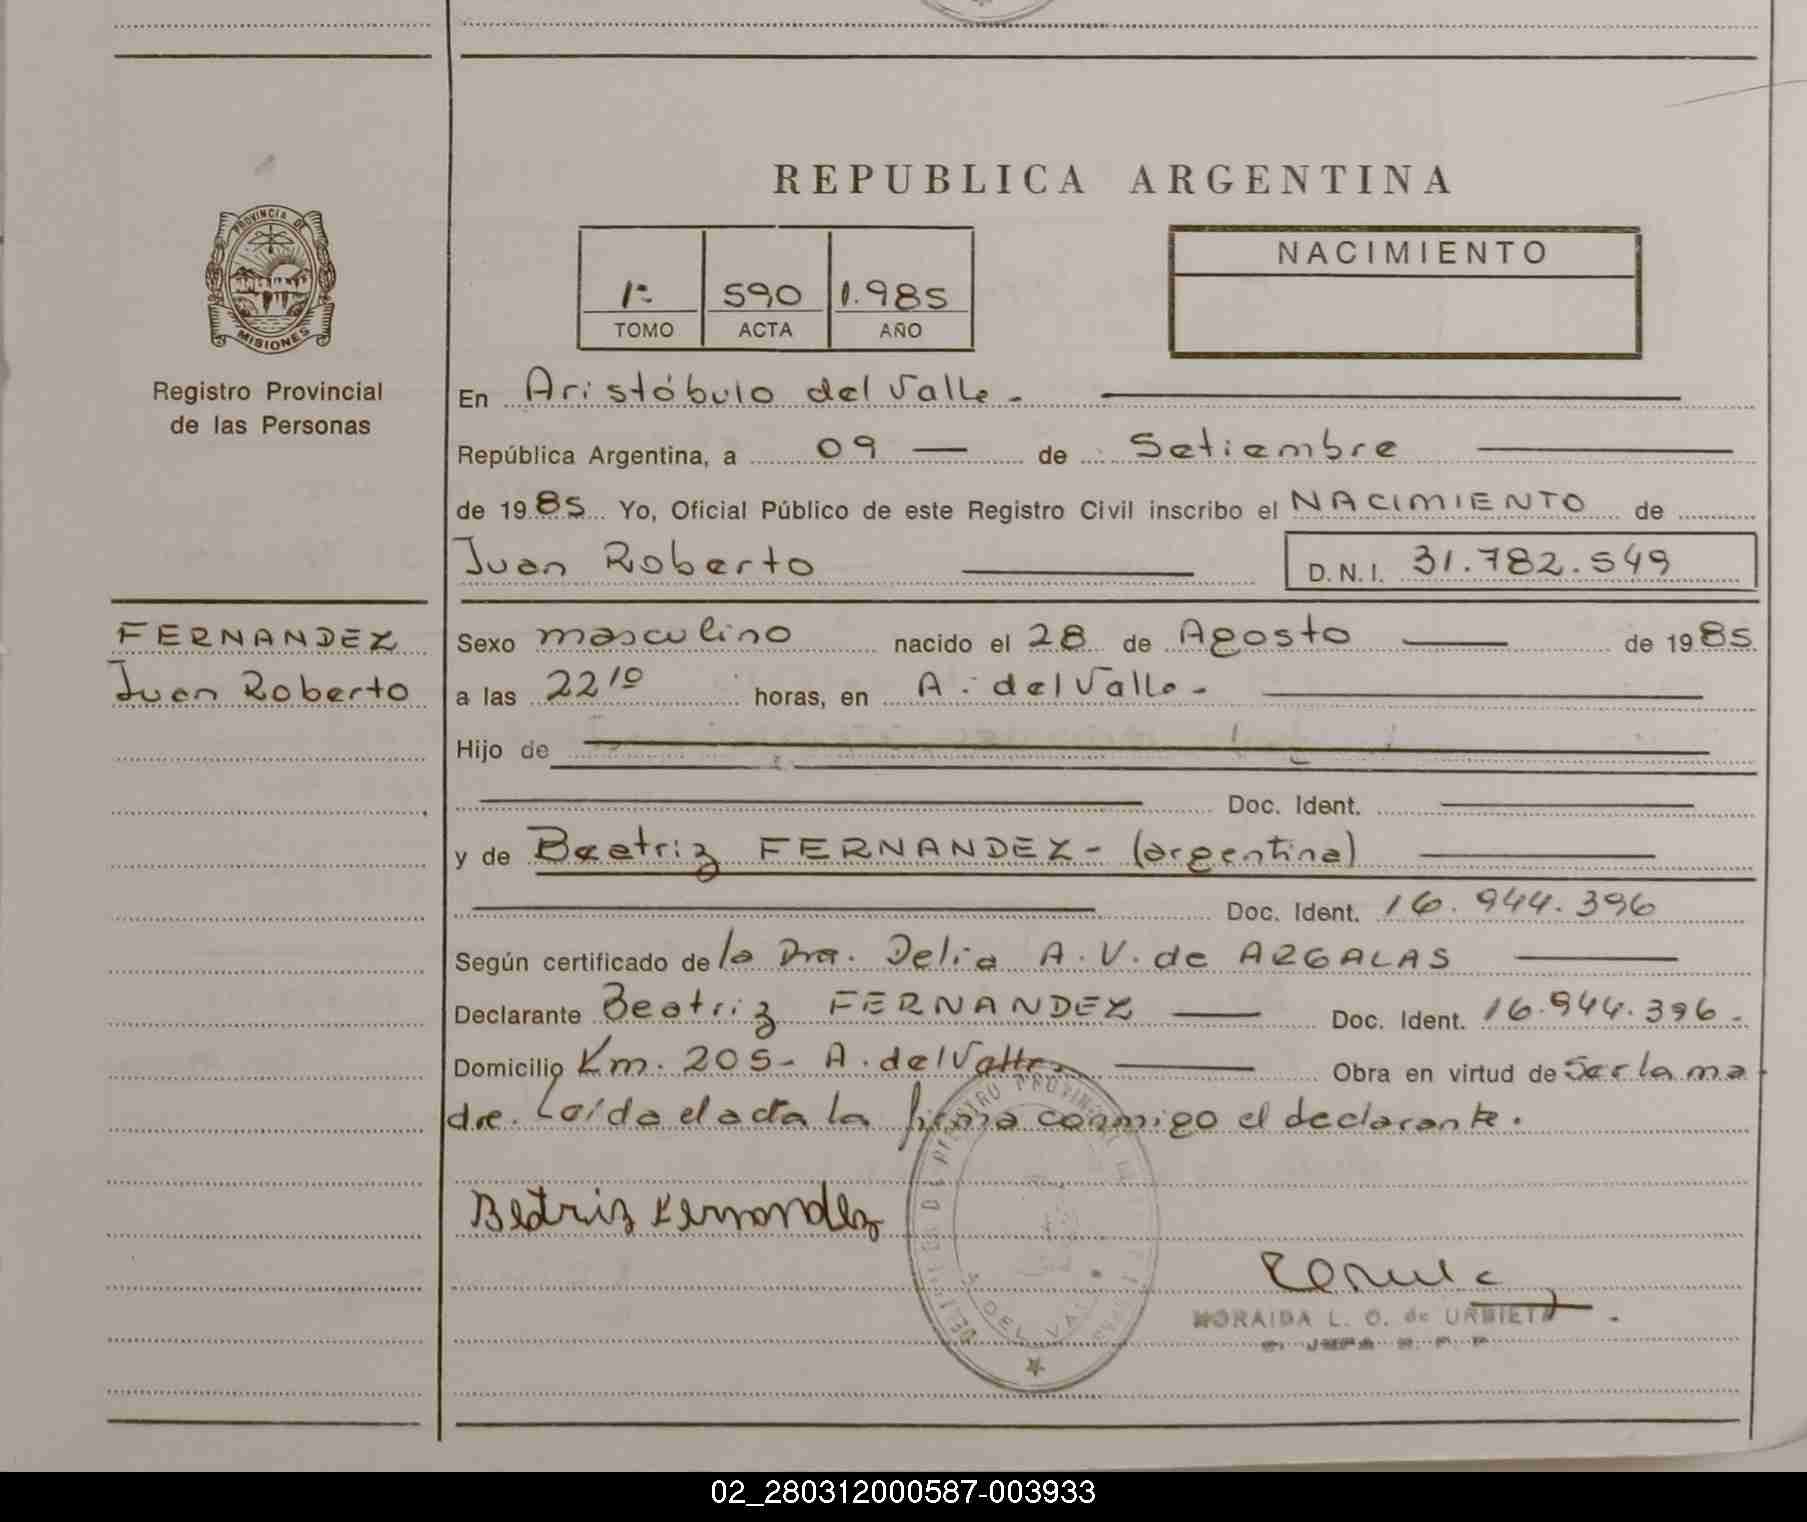 PROVINCIA DE
MISIONES
Registro Provincial
de las Personas
FERNANDEZ
Juan Roberto
REPUBLICA ARGENTINA
1º 590 1.985
TOMO ACTA AÑO
NACIMIENTO
En Aristóbulo del Valle.
República Argentina, a 09 de Setiembre
de 1985 Yo, Oficial Público de este Registro Civil inscribo el NACIMIENTO de
Juan Roberto D.N.I. 31.782.549
Sexo masculino nacido el 28 de Agosto de 1985
a las 22 10 horas, en A. del Valle.
Hijo de
Doc. Ident.
y de Beatriz FERNANDEZ - (argentina)
Doc. Ident. 16.944.396
Según certificado de la Dra. Delia A. V. de ARGALAS
Declarante Beatriz FERNANDEZ Doc. Ident. 16.944.396.
Domicilio Km. 205 - A. del Valle. Obra en virtud de Ser la ma
dre. Leída el acta la firma conmigo el declarante.
Beatriz Fernandez
DEL VALLE
MORAIDA L. O. de URBIETA
02_280312000587-003933